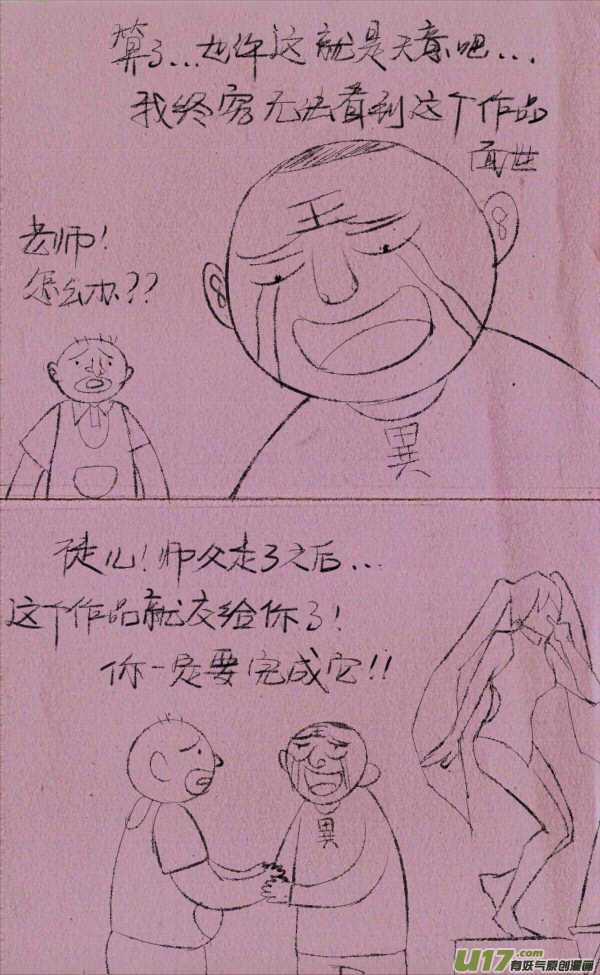 算了...也许这就是天意吧...
我终究无法看到这个作品
面世
老师!
怎么办??
王
異
徒儿!师父走了之后...
这个作品就交给你了!
你一定要完成它!!
異
U17.com
有妖气原创漫画